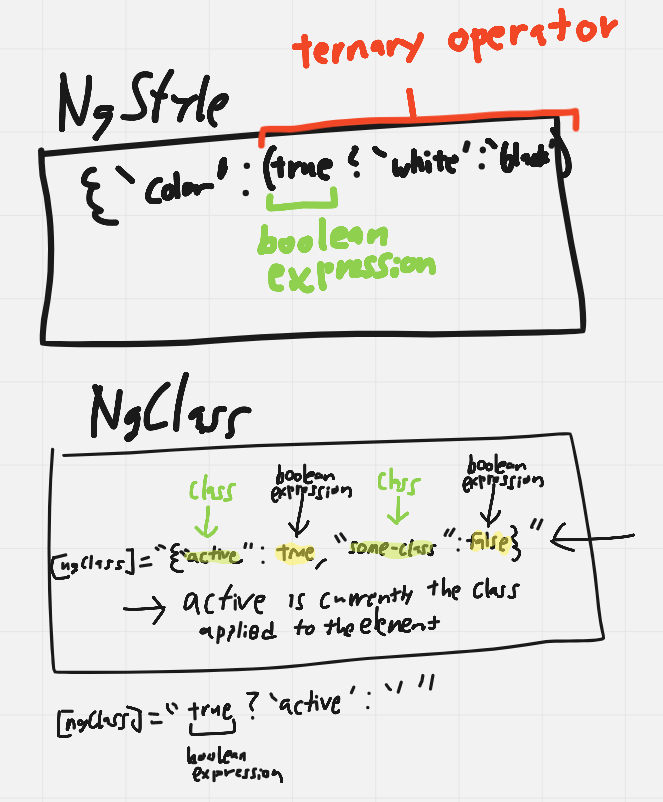 ternary operator
NgStyle
{ 'color' : (true ? 'white' : 'black')
boolean
expression
NgClass
class
boolean
expression
class
boolean
expression
[ngClass]="{"active" : true, "some-class" : false}"
→ active is currently the class
applied to the element
[ngClass]="true ? 'active' : ''"
boolean
expression